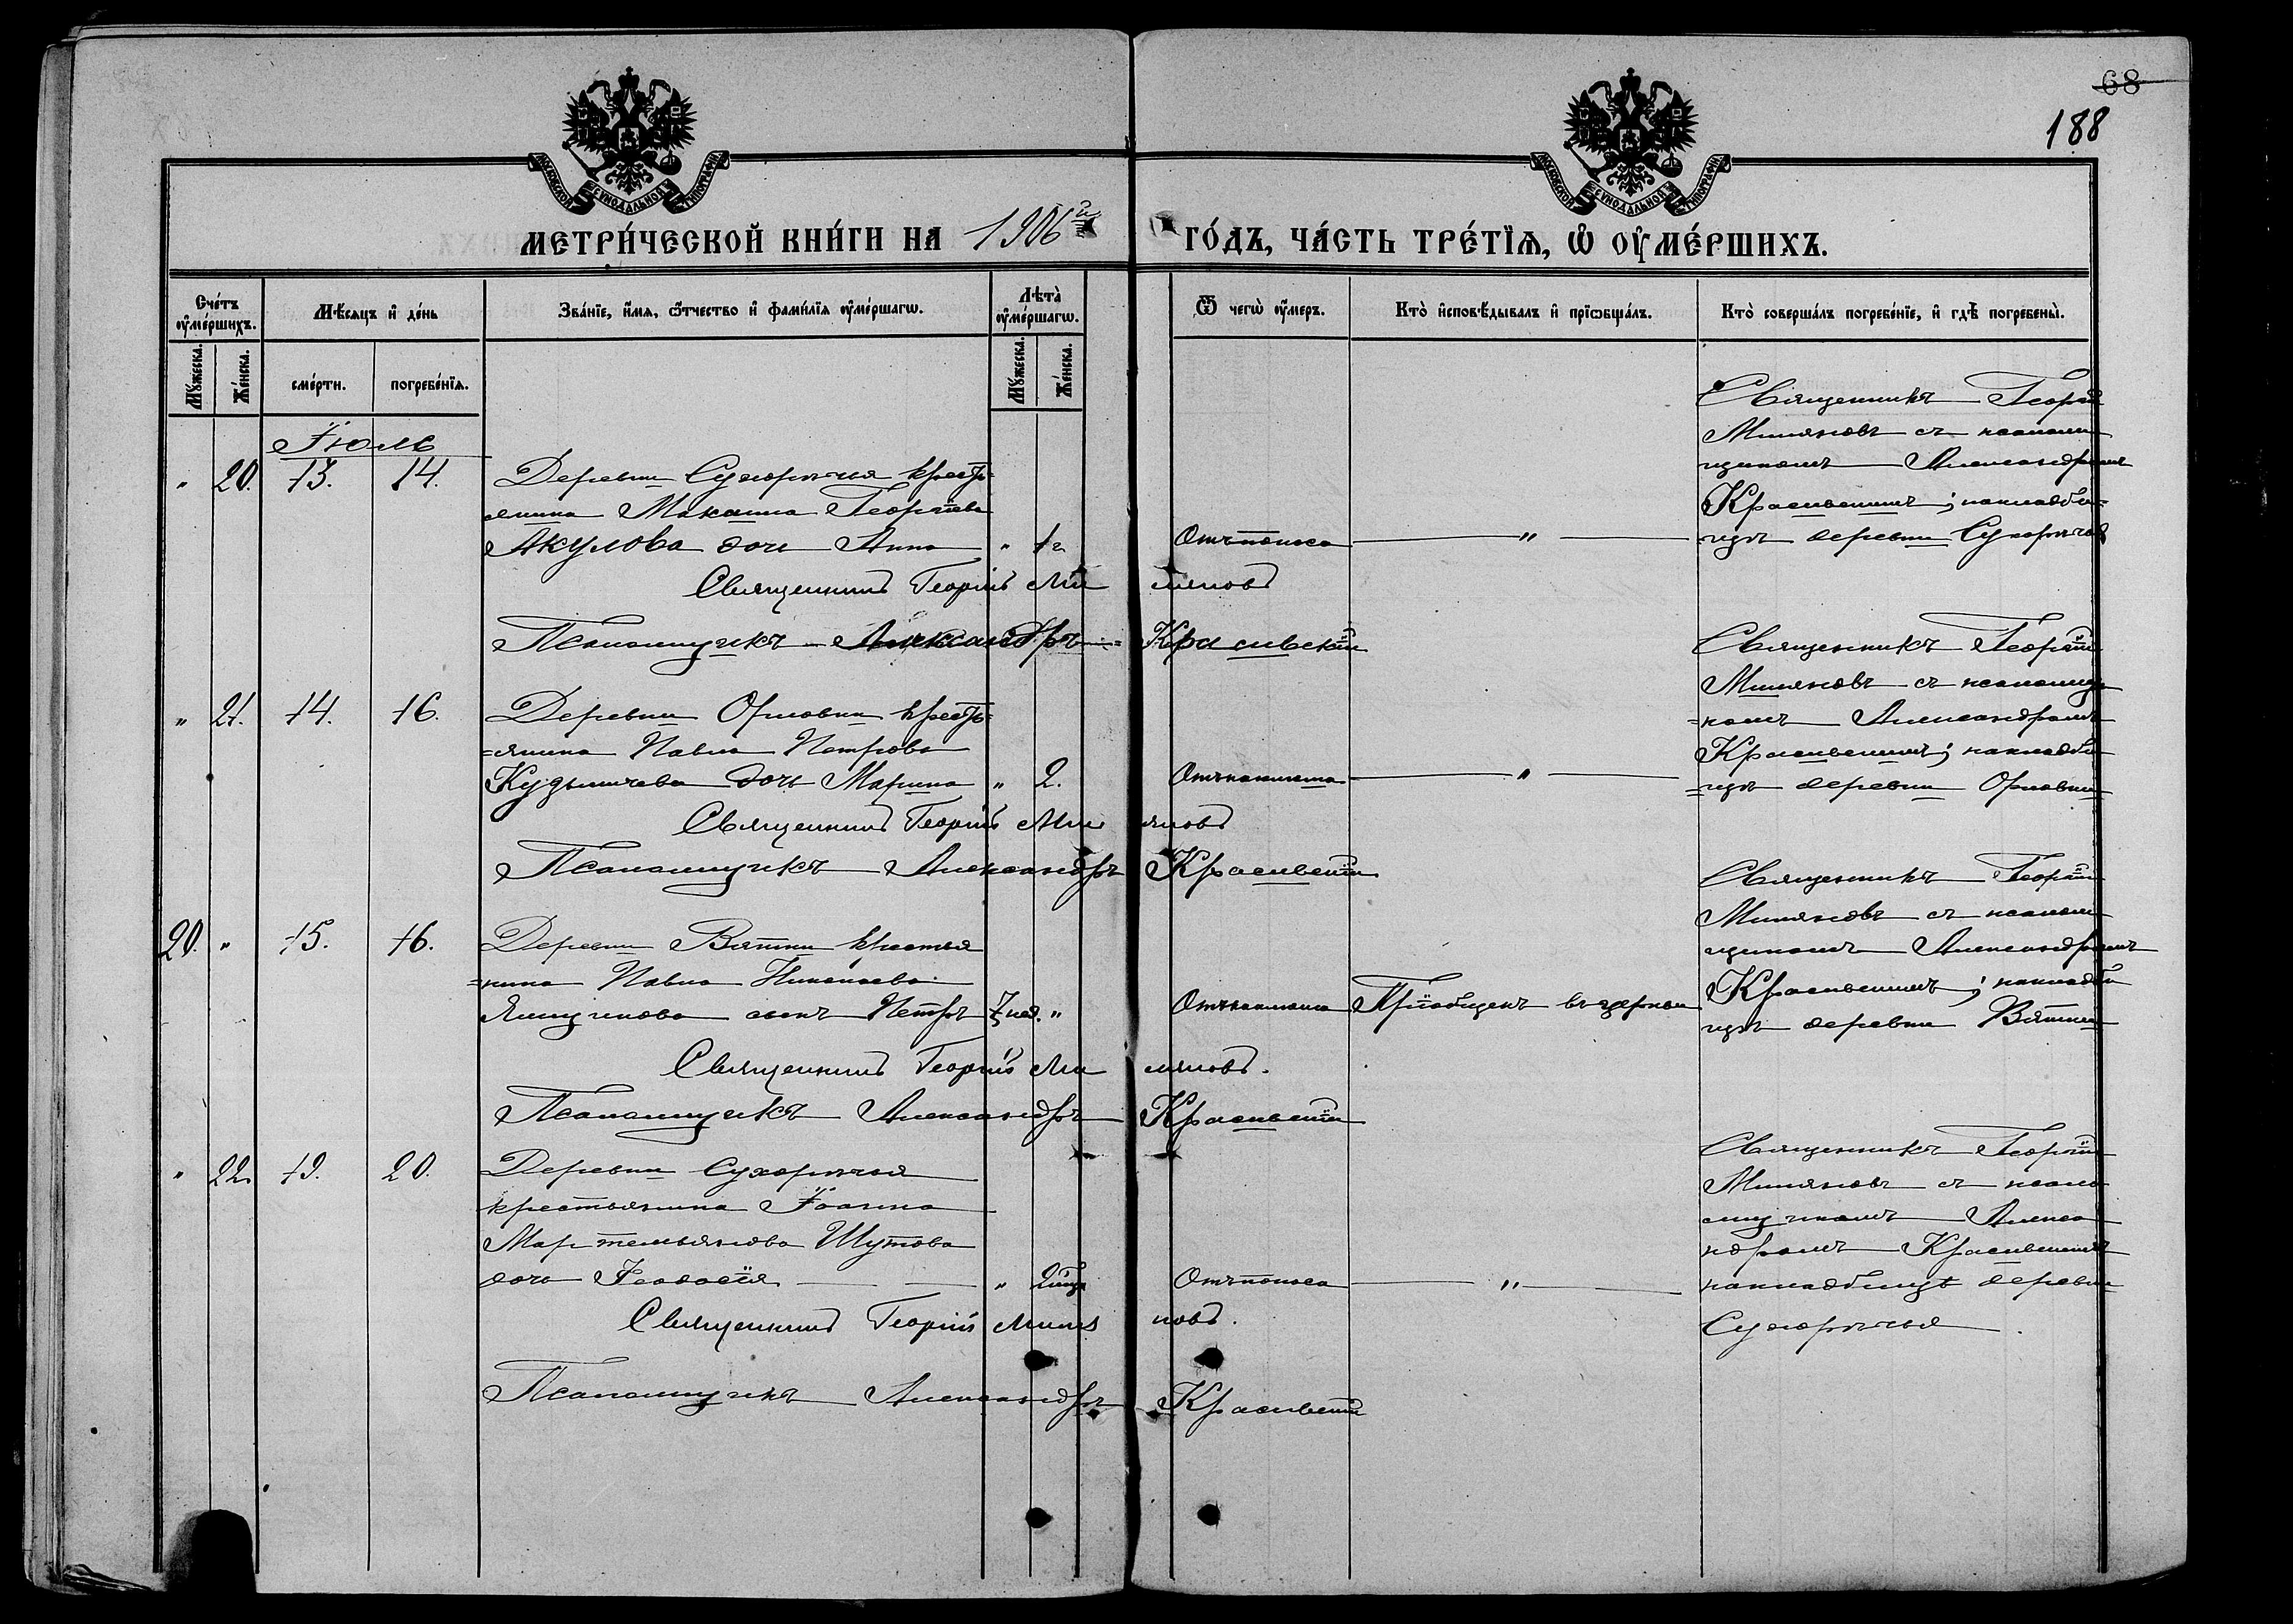 68
188
МОСКОВСКОЙ СУНОДАЛЬНОЙ ТИПОГРАФІИ
МОСКОВСКОЙ СУНОДАЛЬНОЙ ТИПОГРАФІИ
МЕТРИ́ЧЕСКОЙ КНИ́ГИ НА 1906й ГО́ДЪ, ЧА́СТЬ ТРЕ́ТІѦ, Ѡ ОУМЕ́РШИХЪ.
Сче́тъ оуме́ршихъ.
Мѣсяцъ и де́нь
Зва́ніе, и́мя, ѻ́тчество и фами́лія оуме́ршагѡ.
Лѣта̀ оуме́ршагѡ.
Ѿ чегѡ̀ оу́меръ.
Кто̀ исповѣ́дывалъ и пріѡбща́лъ.
Кто̀ соверша́лъ погребе́ніе, и гдѣ̀ погребены̀.
Мꙋ́жеска.
Же́нска.
сме́рти.
погребе́нія.
Мꙋ́жеска.
Же́нска.
Іюль
" 20. 13. 14.
Деревни Сухоречья кресть=
янина Максима Георгіева
Акулова дочь Анна " 1 г
Отъ поноса "
Священникъ Георгій
Миляновъ съ псалом
щикомъ Александромъ
Красивскимъ; на кладби=
щѣ деревни Сухоречья
Священникъ Георгій Миляновъ
Псаломщикъ Александръ Красивскій
" 21. 14. 16.
Деревни Орловки кресть=
=янина Павла Петрова
дочь Марина " 2.
Отъ кашля "
Священникъ Георгій
Миляновъ съ псаломщи
=комъ Александромъ
Красивскимъ; на кладби
=щѣ деревни Орловки
Священникъ Георгій Миляновъ
Псаломщикъ Александръ Красивскій
20. " 15. 16.
Деревни Вятки крестья
=нина Павла Николаева
Ямщикова сынъ Петръ 7 нед. "
Отъ кашля Пріобщенъ въ церкви
Священникъ Георгій
Миляновъ съ псалом
щикомъ Александромъ
Красивскимъ; на кладби
щѣ деревни Вятки
Священникъ Георгій Миляновъ.
Псаломщикъ Александръ Красивскій
" 22 19. 20.
Деревни Сухоречья
крестьянина Іоанна
Мартемьянова Шутова
дочь Ѳеодосія " 2 мца
Отъ поноса "
Священникъ Георгій
Миляновъ съ псало
мщикомъ Алекса
ндромъ Красивскимъ
на кладбищѣ деревни
Сухоречья
Священникъ Георгій Миляновъ.
Псаломщикъ Александръ Красивскій